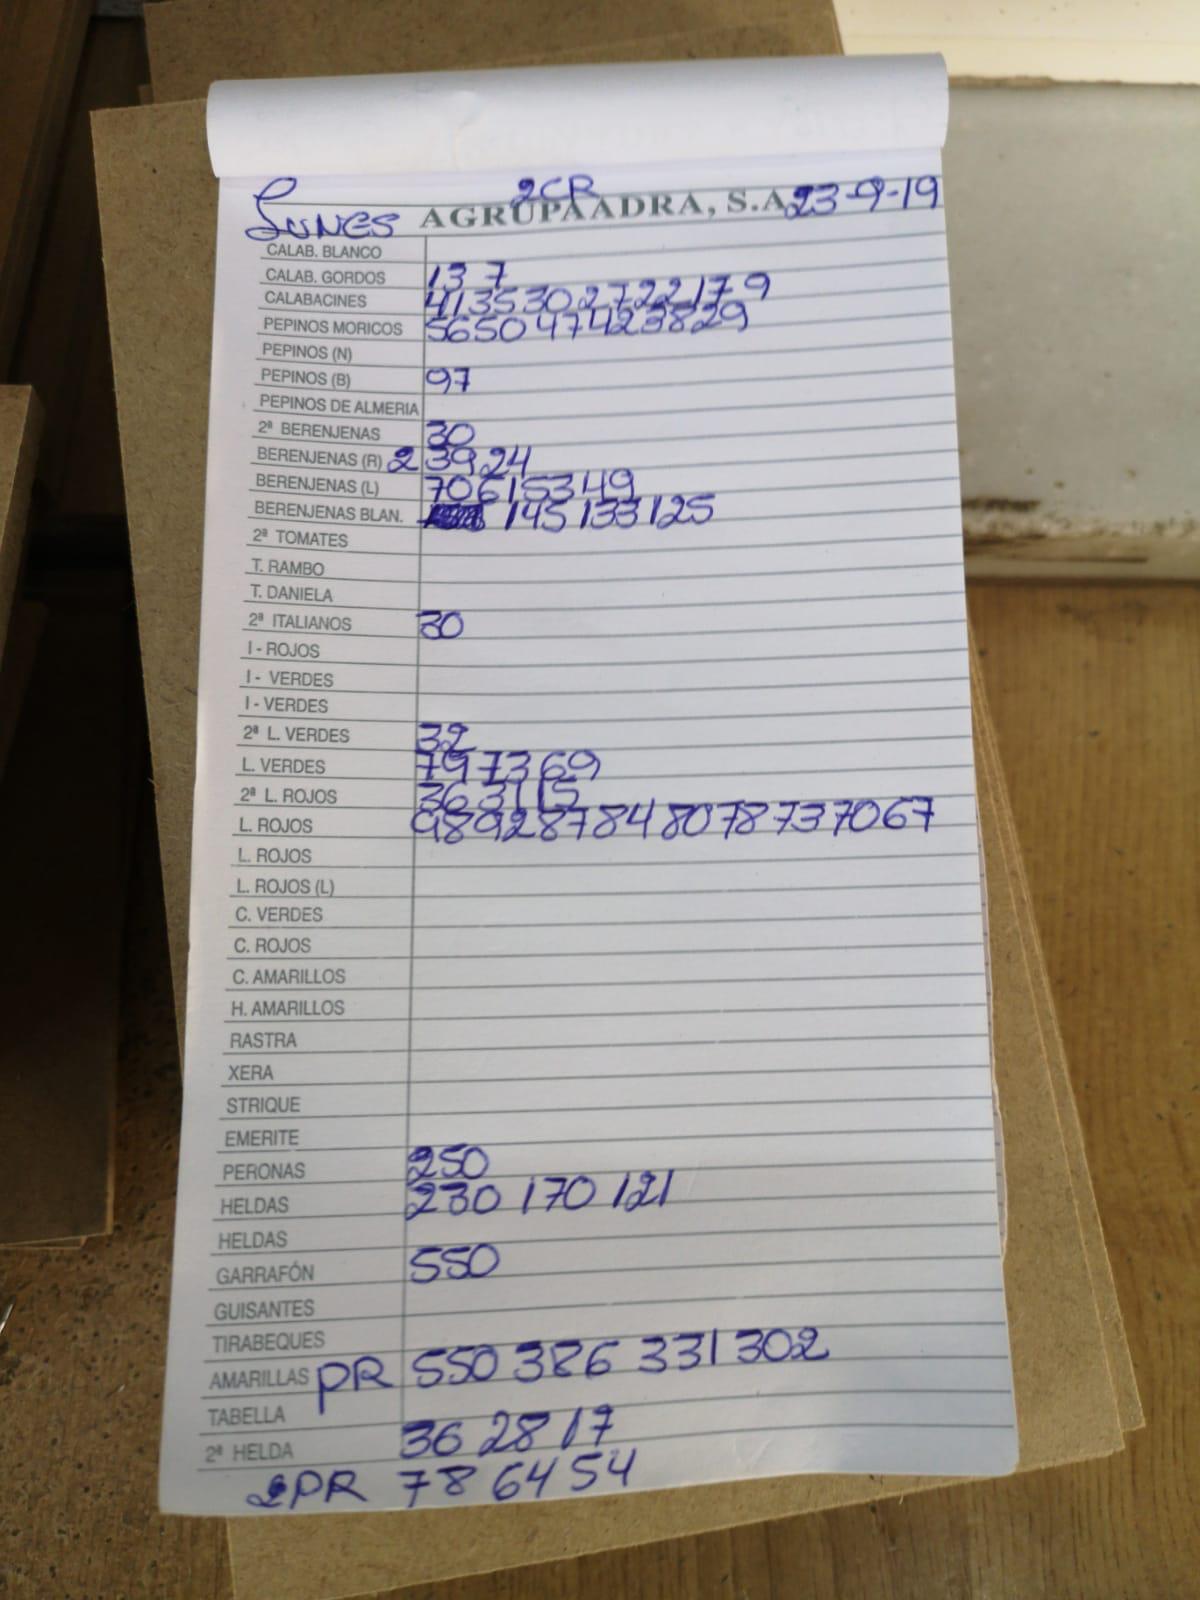 2CR
LUNES AGRUPAADRA, S.A. 23-9-19
CALAB. BLANCO
CALAB. GORDOS 13 7
CALABACINES 41 35 30 27 22 17 9
PEPINOS MORICOS 56 50 47 42 38 29
PEPINOS (N)
PEPINOS (B) 97
PEPINOS DE ALMERIA
2ª BERENJENAS 30
BERENJENAS (R) 2 39 24
BERENJENAS (L) 70 61 53 49
BERENJENAS BLAN. 145 133 125
2ª TOMATES
T. RAMBO
T. DANIELA
2ª ITALIANOS 30
I - ROJOS
I - VERDES
I - VERDES
2ª L. VERDES 32
L. VERDES 79 73 69
2ª L. ROJOS 36 31 15
L. ROJOS 98 92 87 84 80 78 73 70 67
L. ROJOS
L. ROJOS (L)
C. VERDES
C. ROJOS
C. AMARILLOS
H. AMARILLOS
RASTRA
XERA
STRIQUE
EMERITE
PERONAS 250
HELDAS 230 170 121
HELDAS
GARRAFÓN 550
GUISANTES
TIRABEQUES
AMARILLAS PR 550 386 331 302
TABELLA
2ª HELDA 36 28 17
2PR 78 64 54